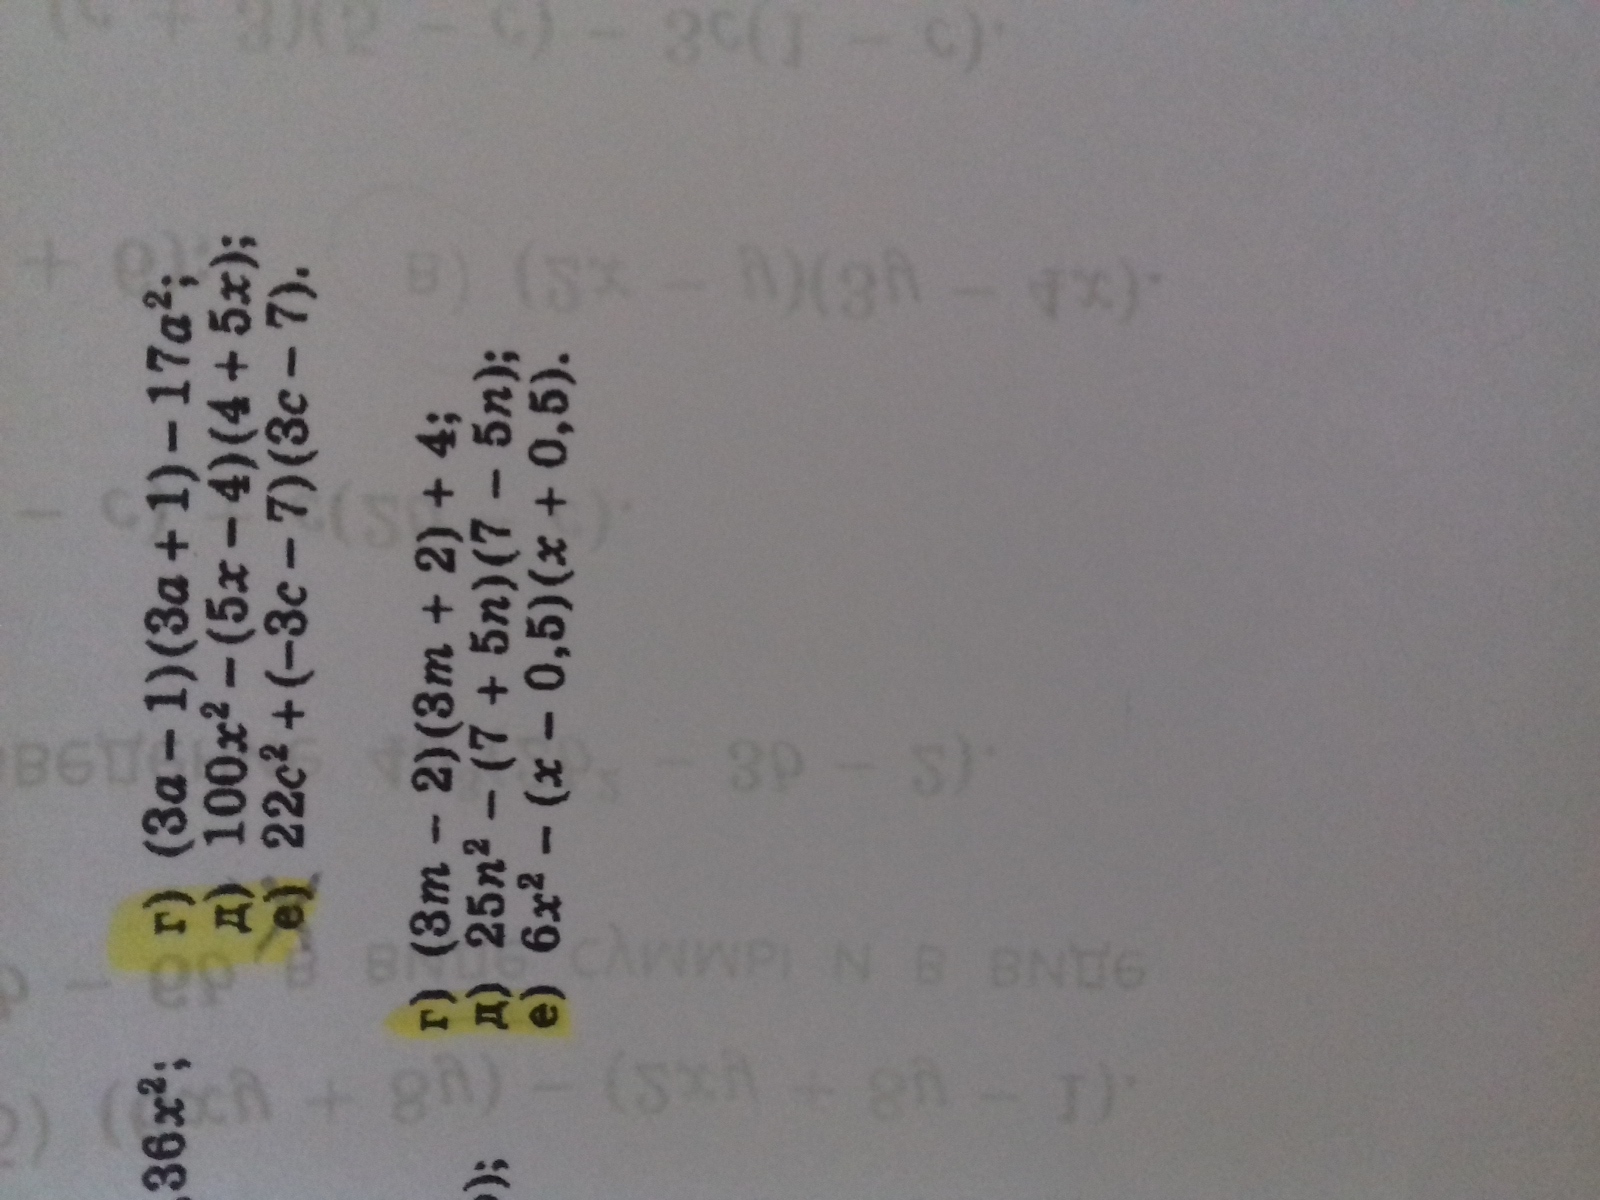 36x²;
г) (3a − 1)(3a + 1) − 17a²;
д) 100x² − (5x − 4)(4 + 5x);
е) 22c² + (−3c − 7)(3c − 7).
);
г) (3m − 2)(3m + 2) + 4;
д) 25n² − (7 + 5n)(7 − 5n);
е) 6x² − (x − 0,5)(x + 0,5).